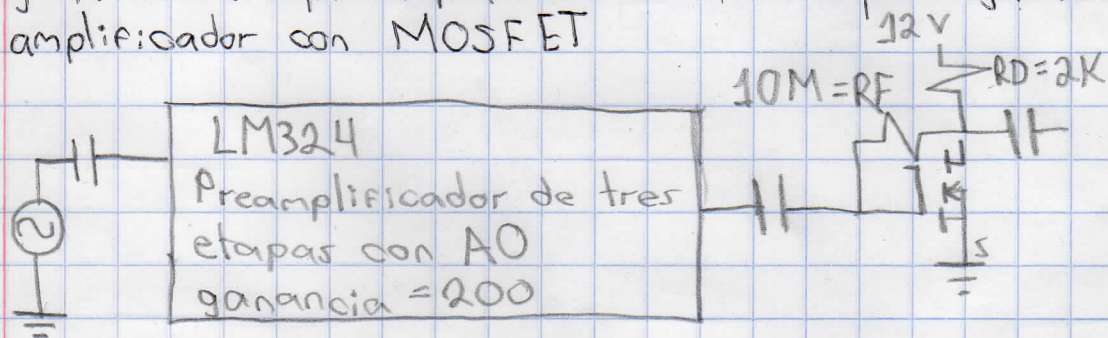 amplificador con MOSFET
12V
10M=RF
RD=2K
LM324
Preamplificador de tres
etapas con AO
ganancia = 200
S